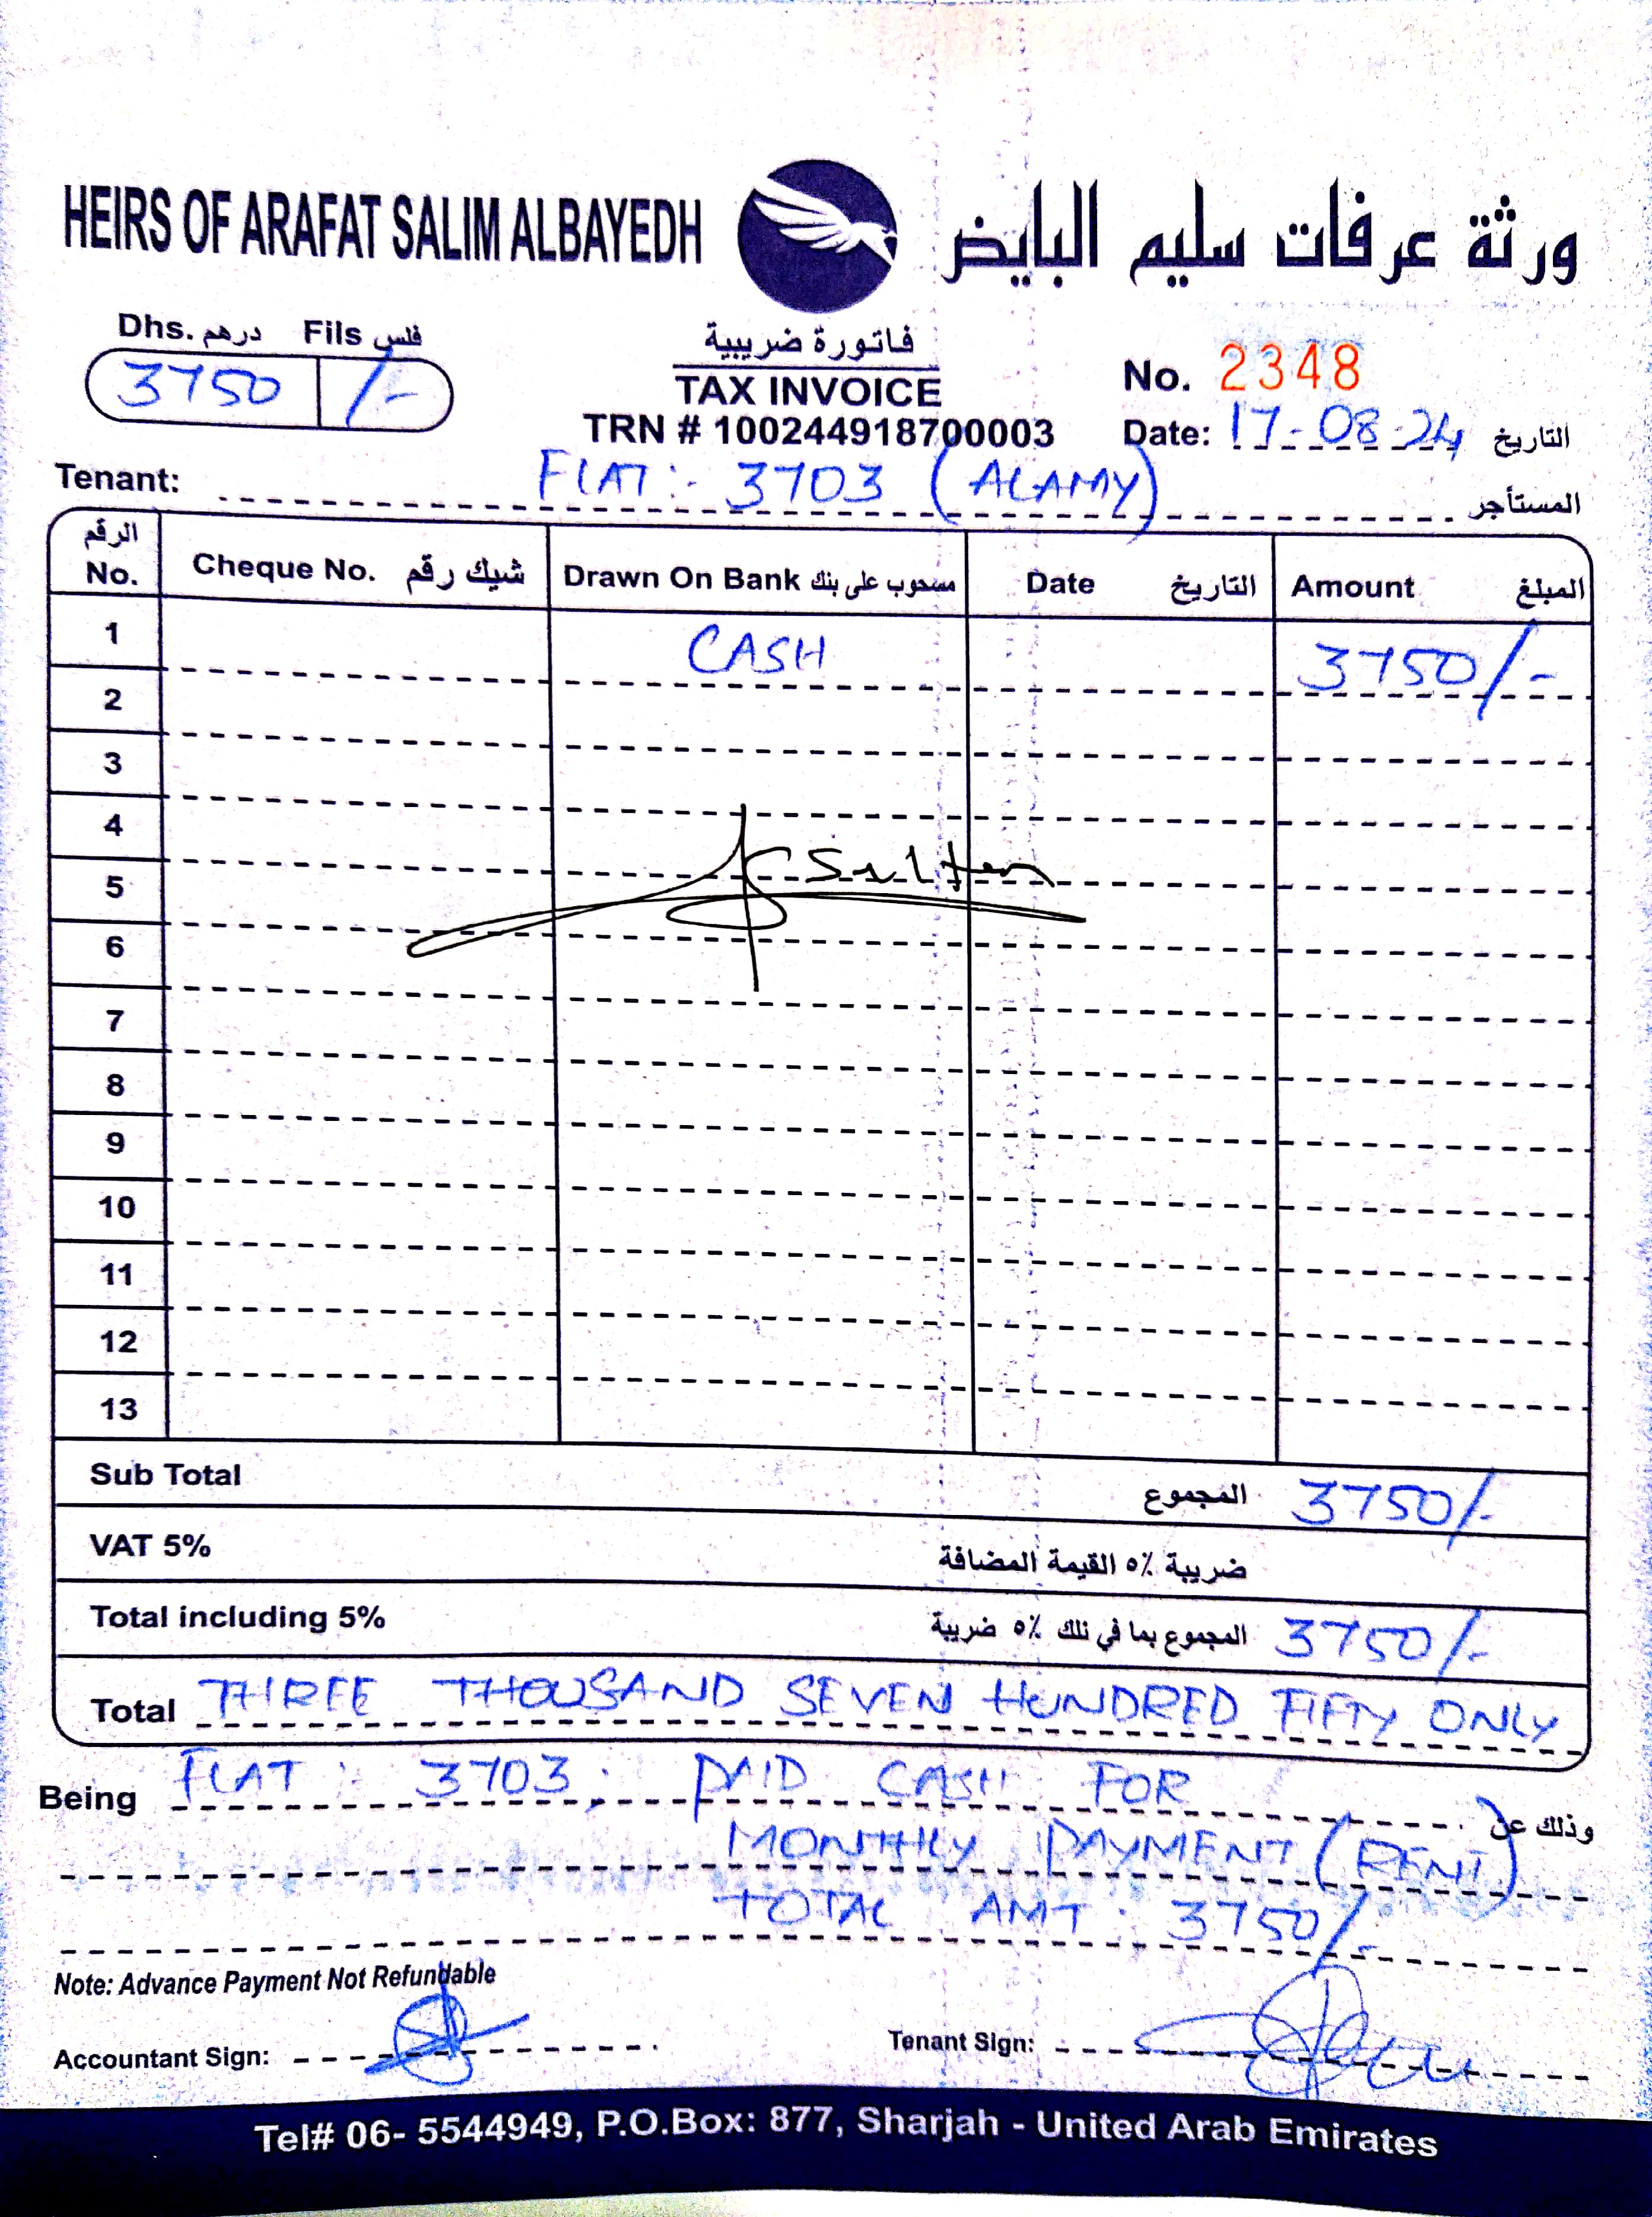 HEIRS OF ARAFAT SALIM ALBAYEDH
ورثة عرفات سليم البايض
Dhs. درهم Fils فلس
3750 /-
فاتورة ضريبية
TAX INVOICE
TRN # 100244918700003
No. 2348
Date: 17-08-24 التاريخ
Tenant: FLAT:- 3703 (ALAMY) المستأجر
الرقم No. Cheque No. شيك رقم Drawn On Bank مسحوب على بنك Date التاريخ Amount المبلغ
1 CASH 3750/-
2
3
4
Sultan
5
6
7
8
9
10
11
12
13
Sub Total المجموع 3750/-
VAT 5% ضريبة ٥٪ القيمة المضافة
Total including 5% المجموع بما في ذلك ٥٪ ضريبة 3750/-
Total THREE THOUSAND SEVEN HUNDRED FIFTY ONLY
Being FLAT : 3703; PAID CASH FOR وذلك عن
MONTHLY PAYMENT (RENT)
TOTAL AMT : 3750/-
Note: Advance Payment Not Refundable
Accountant Sign: Tenant Sign:
Tel# 06- 5544949, P.O.Box: 877, Sharjah - United Arab Emirates